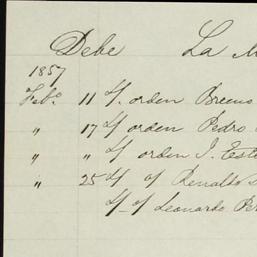 Debe La
1857
Febo. 11 S/. orden Breens
" 17 S/ orden Pedro
" " S/ orden J. Este
" 25 S/ of Renaldo
S/ of Leonardo